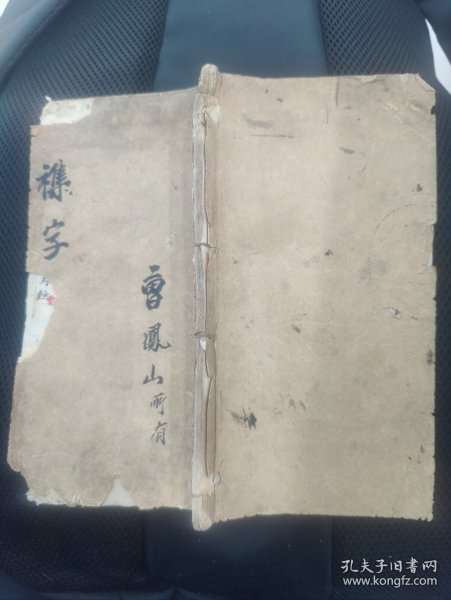 襍字
曹鳳山所有
孔夫子旧书网
www.kongfz.com